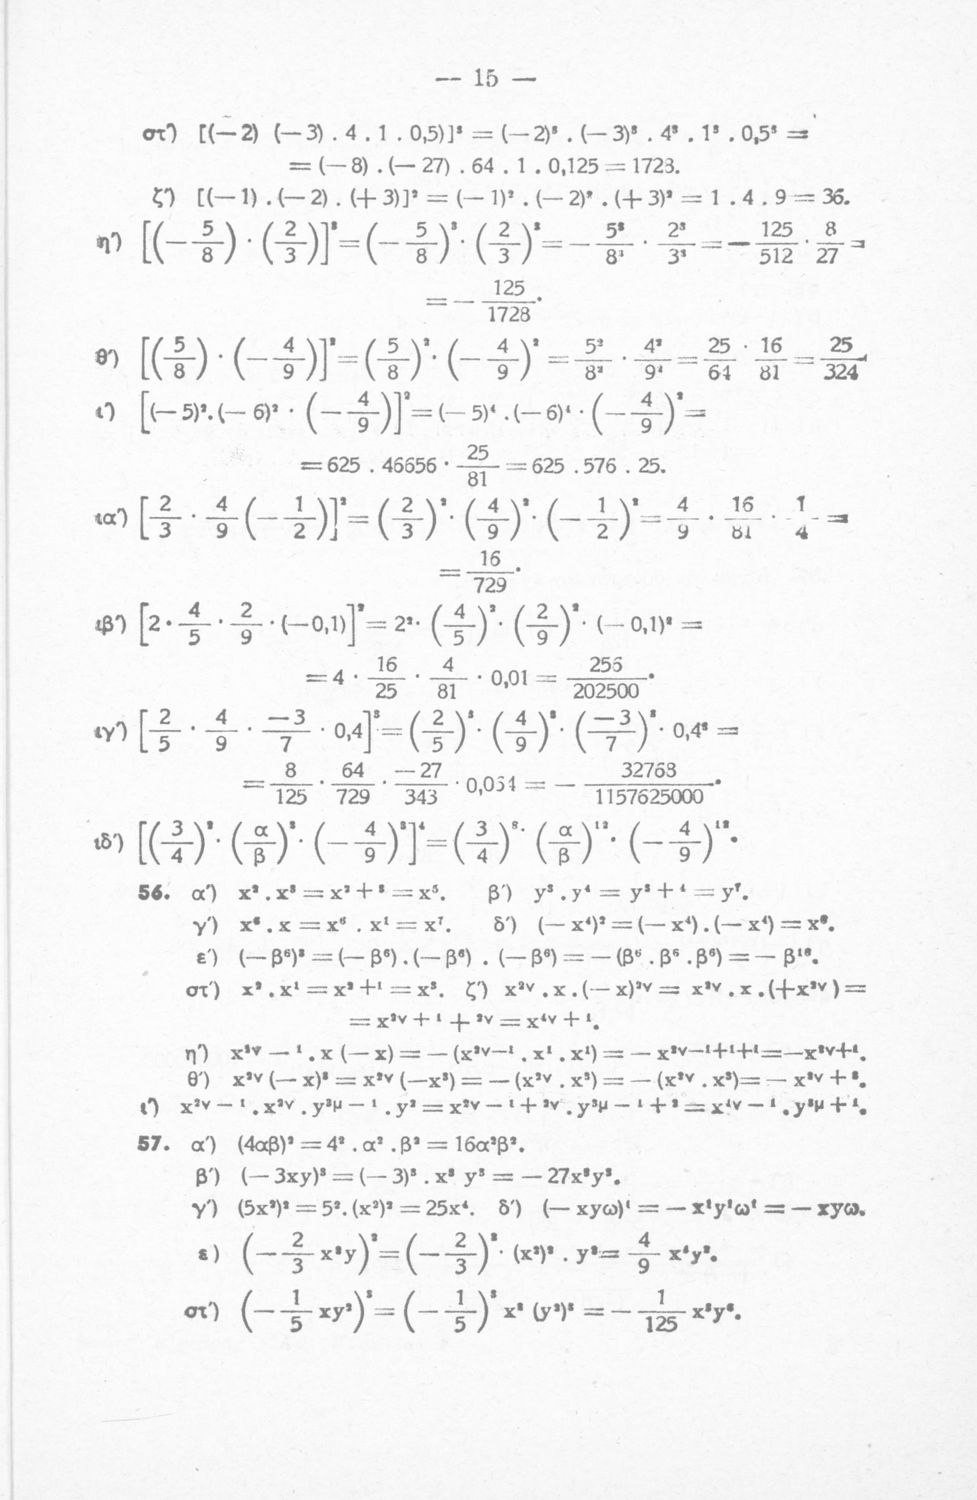 — 15 —
στ′) [(—2) (—3) . 4 . 1 . 0,5)]³ = (—2)³ . (—3)³ . 4³ . 1³ . 0,5³ =
= (—8) . (—27) . 64 . 1 . 0,125 = 1728.
ζ′) [(—1) . (—2) . (+3)]² = (—1)² . (—2)² . (+3)² = 1 . 4 . 9 = 36.
η′) [(—5/8) · (2/3)]³ = (—5/8)³ · (2/3)³ = —5³/8³ · 2³/3³ = —125/512 · 8/27 =
= —125/1728 .
θ′) [(5/8) · (—4/9)]² = (5/8)² · (—4/9)² = 5²/8² · 4²/9² = 25/64 · 16/81 = 25/324
ι′) [(—5)² . (—6)² · (—4/9)]² = (—5)⁴ . (—6)⁴ · (—4/9)² =
= 625 . 46656 · 25/81 = 625 . 576 . 25.
ια′) [2/3 · 4/9 (—1/2)]² = (2/3)² · (4/9)² · (—1/2)² = 4/9 · 16/81 · 1/4 =
= 16/729 .
ιβ′) [2 · 4/5 · 2/9 · (—0,1)]² = 2² · (4/5)² · (2/9)² · (—0,1)² =
= 4 · 16/25 · 4/81 · 0,01 = 256/202500 .
ιγ′) [2/5 · 4/9 · —3/7 · 0,4]³ = (2/5)³ · (4/9)³ · (—3/7)³ · 0,4³ =
= 8/125 · 64/729 · —27/343 · 0,064 = — 32768/1157625000 .
ιδ′) [(3/4)² · (α/β)³ · (—4/9)³]⁴ = (3/4)⁸ · (α/β)¹² · (—4/9)¹² .
56. α′) x² . x³ = x² + ³ = x⁵. β′) y³ . y⁴ = y³ + ⁴ = y⁷.
γ′) x⁶ . x = x⁶ . x¹ = x⁷. δ′) (—x⁴)² = (—x⁴) . (—x⁴) = x⁸.
ε′) (—β⁶)³ = (—β⁶) . (—β⁶) . (—β⁶) = —(β⁶ . β⁶ . β⁶) = —β¹⁸.
στ′) x² . x¹ = x² +¹ = x³. ζ′) x²ᵛ . x . (—x)²ᵛ = x²ᵛ . x . (+x²ᵛ) =
= x²ᵛ + ¹ + ²ᵛ = x⁴ᵛ + ¹.
η′) x²ᵛ — ¹ . x (—x) = —(x²ᵛ—¹ . x¹ . x¹) = —x²ᵛ—¹+¹+¹ = —x²ᵛ+¹.
θ′) x²ᵛ (—x)³ = x²ᵛ (—x³) = —(x²ᵛ . x³) = —(x²ᵛ . x³) = —x²ᵛ + ³.
ι′) x²ᵛ — ¹ . x²ᵛ . y³μ — ¹ . y² = x²ᵛ — ¹ + ²ᵛ . y³μ — ¹ + ² = x⁴ᵛ — ¹ . y³μ + ¹.
57. α′) (4αβ)² = 4² . α² . β² = 16α²β².
β′) (—3xy)³ = (—3)³ . x³ y³ = —27x³y³.
γ′) (5x²)² = 5² . (x²)² = 25x⁴. δ′) (—xyω)¹ = —x¹y¹ω¹ = —xyω.
ε) (—2/3 x²y)² = (—2/3)² · (x²)² . y² = 4/9 x⁴y².
στ′) (—1/5 xy²)³ = (—1/5)³ x³ (y²)³ = —1/125 x³y⁶.